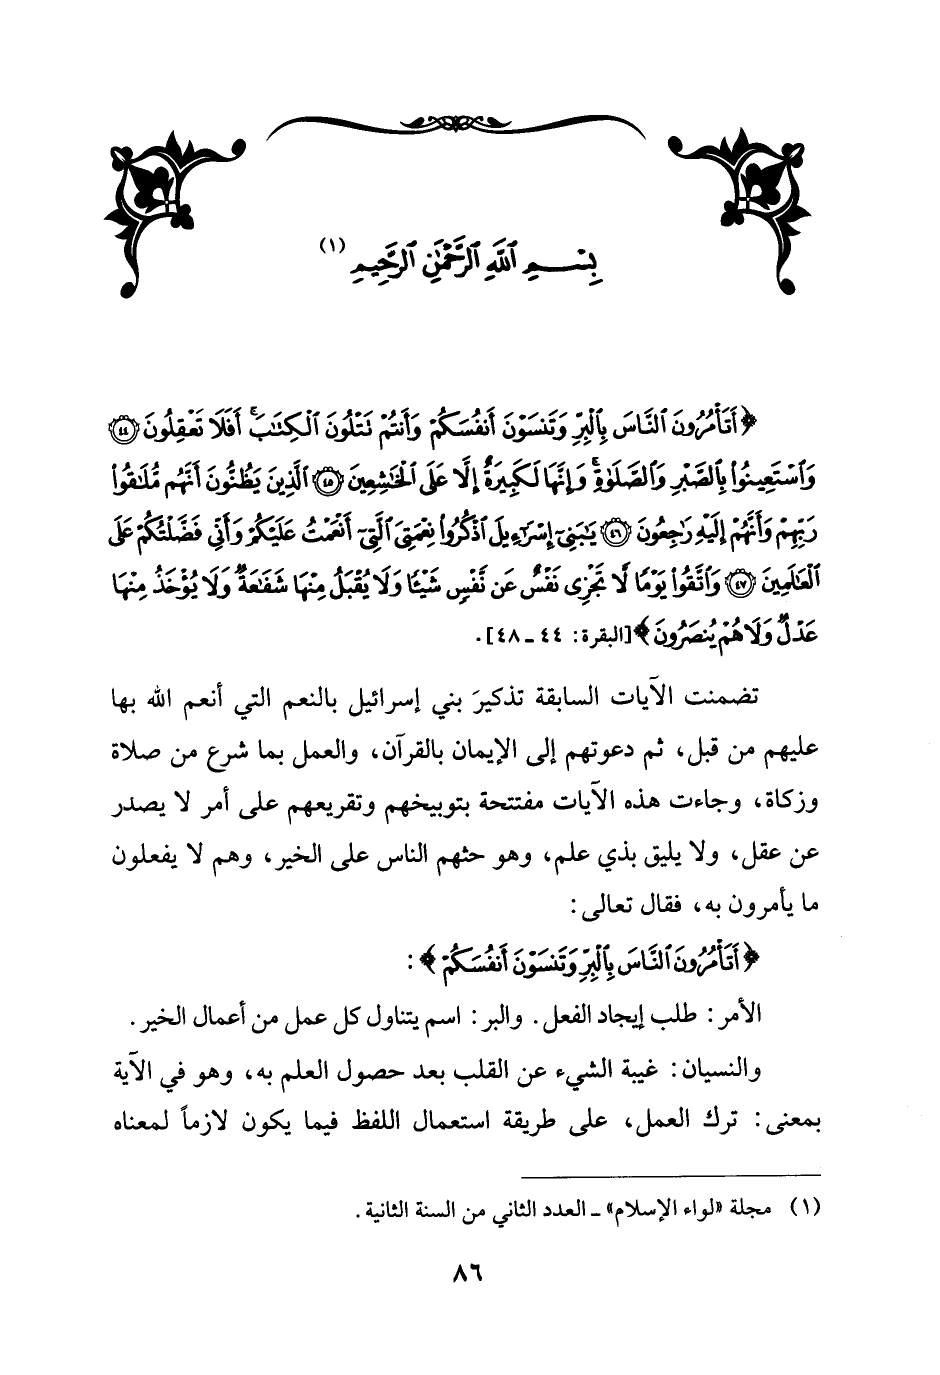 بِسْمِ ٱللَّهِ ٱلرَّحْمَٰنِ ٱلرَّحِيمِ (١)
﴿ أَتَأْمُرُونَ ٱلنَّاسَ بِٱلْبِرِّ وَتَنسَوْنَ أَنفُسَكُمْ وَأَنتُمْ تَتْلُونَ ٱلْكِتَٰبَ ۚ أَفَلَا تَعْقِلُونَ ٤٤
وَٱسْتَعِينُوا۟ بِٱلصَّبْرِ وَٱلصَّلَوٰةِ ۚ وَإِنَّهَا لَكَبِيرَةٌ إِلَّا عَلَى ٱلْخَٰشِعِينَ ٤٥ ٱلَّذِينَ يَظُنُّونَ أَنَّهُم مُّلَٰقُوا۟
رَبِّهِمْ وَأَنَّهُمْ إِلَيْهِ رَٰجِعُونَ ٤٦ يَٰبَنِىٓ إِسْرَٰٓءِيلَ ٱذْكُرُوا۟ نِعْمَتِىَ ٱلَّتِىٓ أَنْعَمْتُ عَلَيْكُمْ وَأَنِّى فَضَّلْتُكُمْ عَلَى
ٱلْعَٰلَمِينَ ٤٧ وَٱتَّقُوا۟ يَوْمًا لَّا تَجْزِى نَفْسٌ عَن نَّفْسٍ شَيْـًٔا وَلَا يُقْبَلُ مِنْهَا شَفَٰعَةٌ وَلَا يُؤْخَذُ مِنْهَا
عَدْلٌ وَلَا هُمْ يُنصَرُونَ ﴾ [البقرة: ٤٤ - ٤٨].
تضمنت الآيات السابقة تذكيرَ بني إسرائيل بالنعم التي أنعم الله بها
عليهم من قبل، ثم دعوتهم إلى الإيمان بالقرآن، والعمل بما شرع من صلاة
وزكاة، وجاءت هذه الآيات مفتتحة بتوبيخهم وتقريعهم على أمر لا يصدر
عن عقل، ولا يليق بذي علم، وهو حثهم الناس على الخير، وهم لا يفعلون
ما يأمرون به، فقال تعالى:
﴿ أَتَأْمُرُونَ ٱلنَّاسَ بِٱلْبِرِّ وَتَنسَوْنَ أَنفُسَكُمْ ﴾:
الأمر: طلب إيجاد الفعل. والبر: اسم يتناول كل عمل من أعمال الخير.
والنسيان: غيبة الشيء عن القلب بعد حصول العلم به، وهو في الآية
بمعنى: ترك العمل، على طريقة استعمال اللفظ فيما يكون لازماً لمعناه
(١) مجلة «لواء الإسلام» - العدد الثاني من السنة الثانية.
٨٦